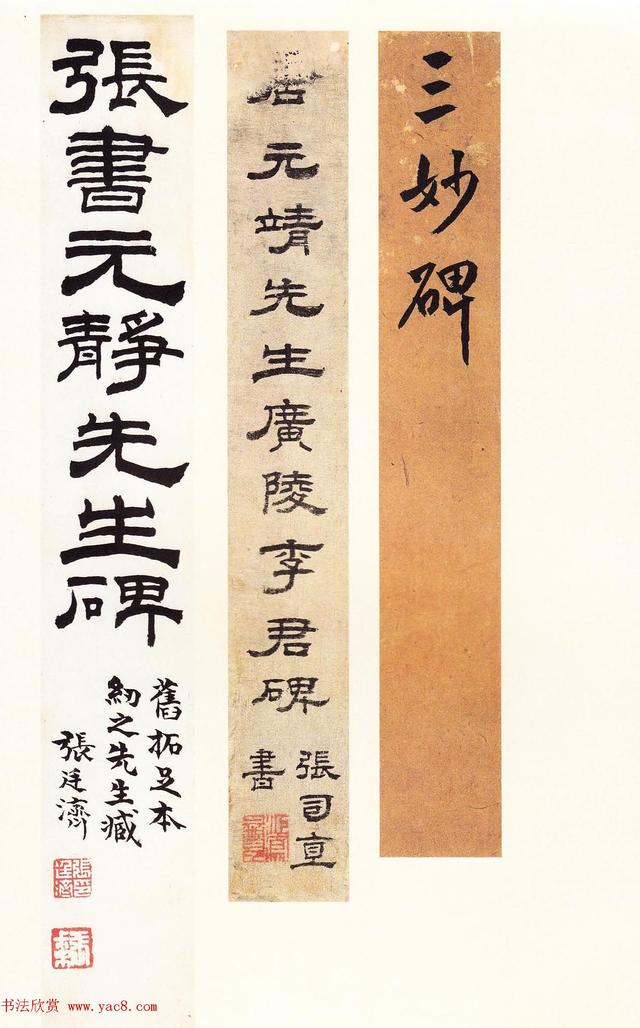 三妙碑
唐元靖先生廣陵李君碑
張司直
書
張書元靜先生碑
舊拓足本
紉之先生臧
張廷濟
书法欣赏 www.yac8.com